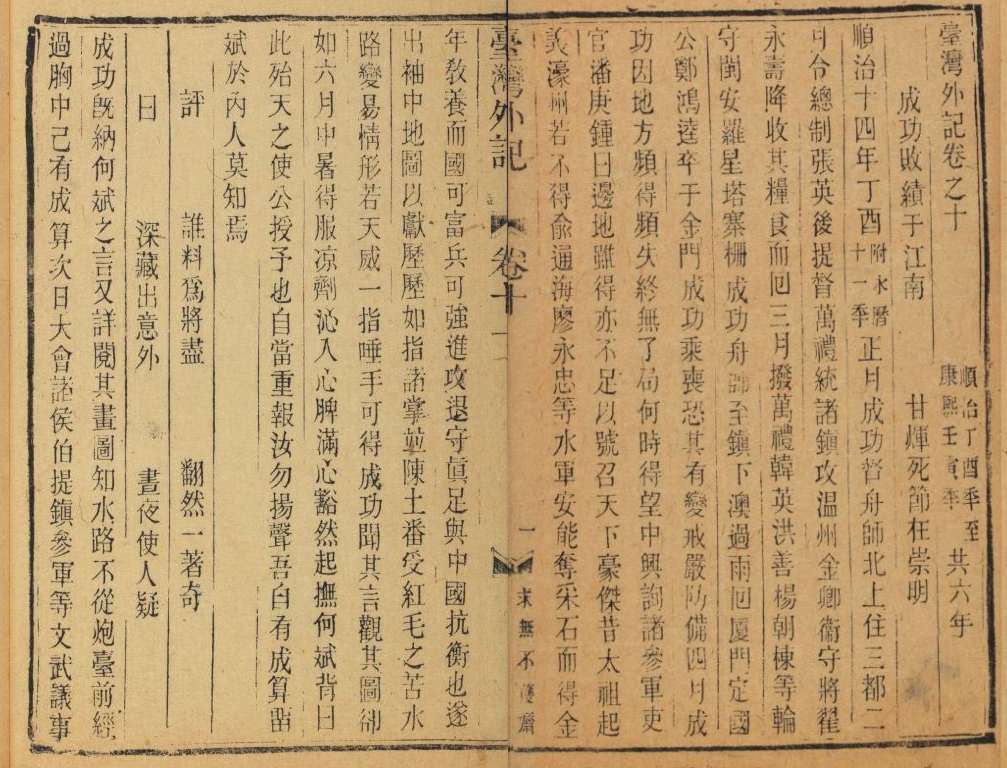 臺灣外記卷之十 順治丁酉年至康熙壬寅年共六年
成功敗績于江南 甘煇死節枉崇明
順治十四年丁酉附永曆十一年正月成功督舟師北上住三都二
可令總制張英後提督萬禮統諸鎮攻温州金卿衞守將翟
永壽降收其糧食而囘三月撥萬禮韓英洪善楊朝棟等輪
守閩安羅星塔寨柵成功舟師至鎮下澳過雨囘厦門定國
公鄭鴻逵卒于金門成功乘喪恐其有變戒嚴防備四月成
功因地方頻得頻失終無了局何時得望中興詢諸參軍吏
官潘庚鍾曰邊地雖得亦不足以號召天下豪傑昔太祖起
義濠州若不得俞通海廖永忠等水軍安能奪采石而得金
臺灣外記 卷十 一 求無不獲齋
年敎養而國可富兵可強進攻退守眞足與中國抗衡也遂
出袖中地圖以獻歷歷如指諸掌並陳土番受紅毛之苦水
路變易情形若天威一指唾手可得成功聞其言觀其圖卻
如六月中暑得服凉劑沁入心脾滿心豁然起撫何斌背曰
此殆天之使公授予也自當重報汝勿揚聲吾自有成算畱
斌於內人莫知焉
評 誰料爲將盡 翻然一著奇
曰 深藏出意外 晝夜使人疑
成功旣納何斌之言又詳閱其畫圖知水路不從炮臺前經
過胸中已有成算次日大會諸侯伯提鎮參軍等文武議事